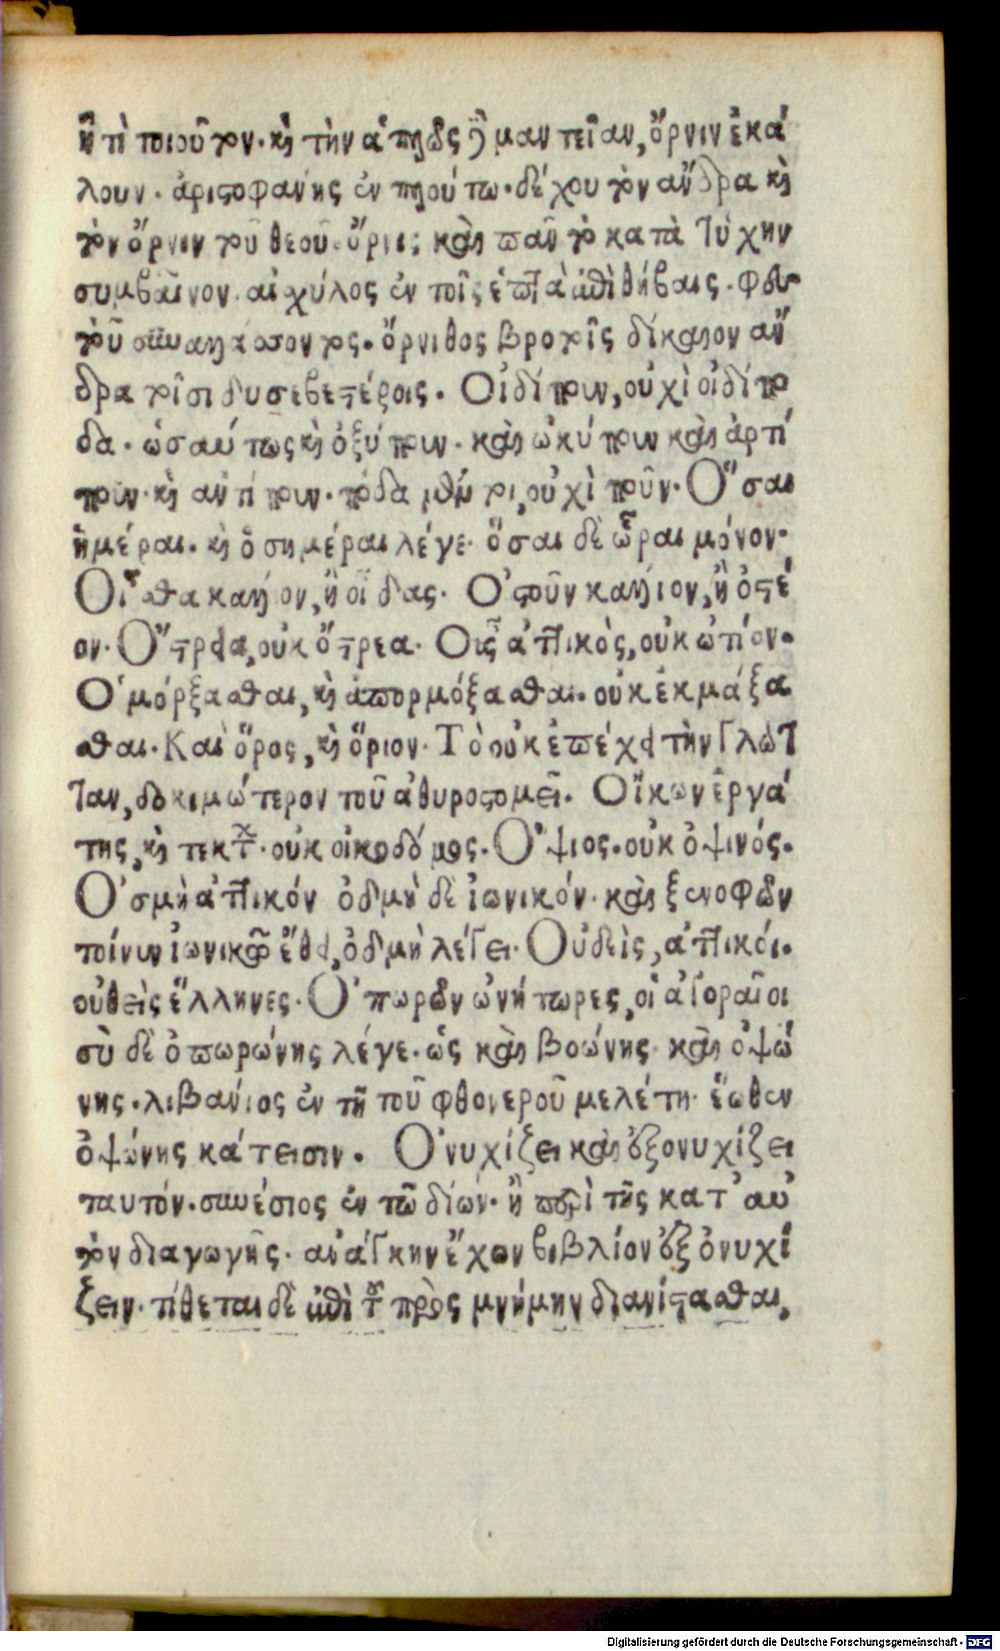 ἢ τὶ ποιοῦτον· καὶ τὴν ἁπλῶς δὲ μαντείαν, ὄρνιν ἐκά
λουν· ἀριστοφάνης ἐν πλούτω· δέχου τὸν ἄνδρα καὶ
τὸν ὄρνιν τοῦ θεοῦ. ὄρνις καὶ πᾶν τὸ κατὰ τύχην
συμβαῖνον· αἰχύλος ἐν τοῖς ἑπτὰ ἐπὶ θήβαις· φεῦ
τοῦ συναλλάσσοντος. ὄρνιθος βροτοῖς δίκαιον ἄν
δρα τοῖσι δυσεβεστέροις. Οἰδίπουν, οὐχὶ οἰδίπο
δα· ὡσαύτως καὶ ὀξύπουν· καὶ ὠκύπουν καὶ ἀρτί
πουν· καὶ ἀντίπουν· πόδα μέντοι, οὐχὶ ποῦν· Ὅσαι
ἡμέραι. καὶ ὁσημέραι λέγε· ὅσαι δὲ ὧραι μόνον·
Οἶσθα κάλλιον, ἢ οἶδας· Ὀστοῦν κάλλιον, ἢ ὀστέ
ον· Ὄστρεια, οὐκ ὄστρεα· ἀττικὸς, οὐκ ὠτίον·
Ὀμόρξασθαι, καὶ ἀπομόρξασθαι. οὐκ ἐκμάξα
σθαι· Καὶ ὅρος, καὶ ὅριον· Τὸ οὐκ ἐπέχει τὴν γλῶτ
ταν, δοκιμώτερον τοῦ ἀθυροστομεῖ. Οἴκων ἐργά
της, καὶ τεκτ· οὐκ οἰκοδόμος. Ὄψιος. οὐκ ὀψινός.
Ὀσμὴ ἀττικόν ὀδμὴ δὲ ἰωνικόν· καὶ ξενοφῶν
τοίνυν ἰωνικῶ ἔθει, ὀδμὴ λέγει· Οὐδεὶς, ἀττικοί.
οὐθεὶς ἕλληνες· Ὀπωρῶν ὠνήτωρες, οἱ ἀγοραῖοι
σὺ δὲ ὀπωρώνης λέγε. ὡς καὶ βοώνης· καὶ ὀψώ
νης. λιβάνιος ἐν τῆ τοῦ φθονεροῦ μελέτη· ἕωθεν
ὀψώνης κάτεισιν. Ὀνυχίζει καὶ ἐξονυχίζει
ταυτόν. συνέσιος ἐν τῶ δίων· ἢ περὶ τῆς κατ' αὐ
τὸν διαγωγῆς· ἀνάγκην ἔχων βιβλίον ἐξονυχί
ζειν· τίθεται δὲ ἐπὶ τ πρὸς μνήμην διανίστασθαι,
Digitalisierung gefördert durch die Deutsche Forschungsgemeinschaft - DFG